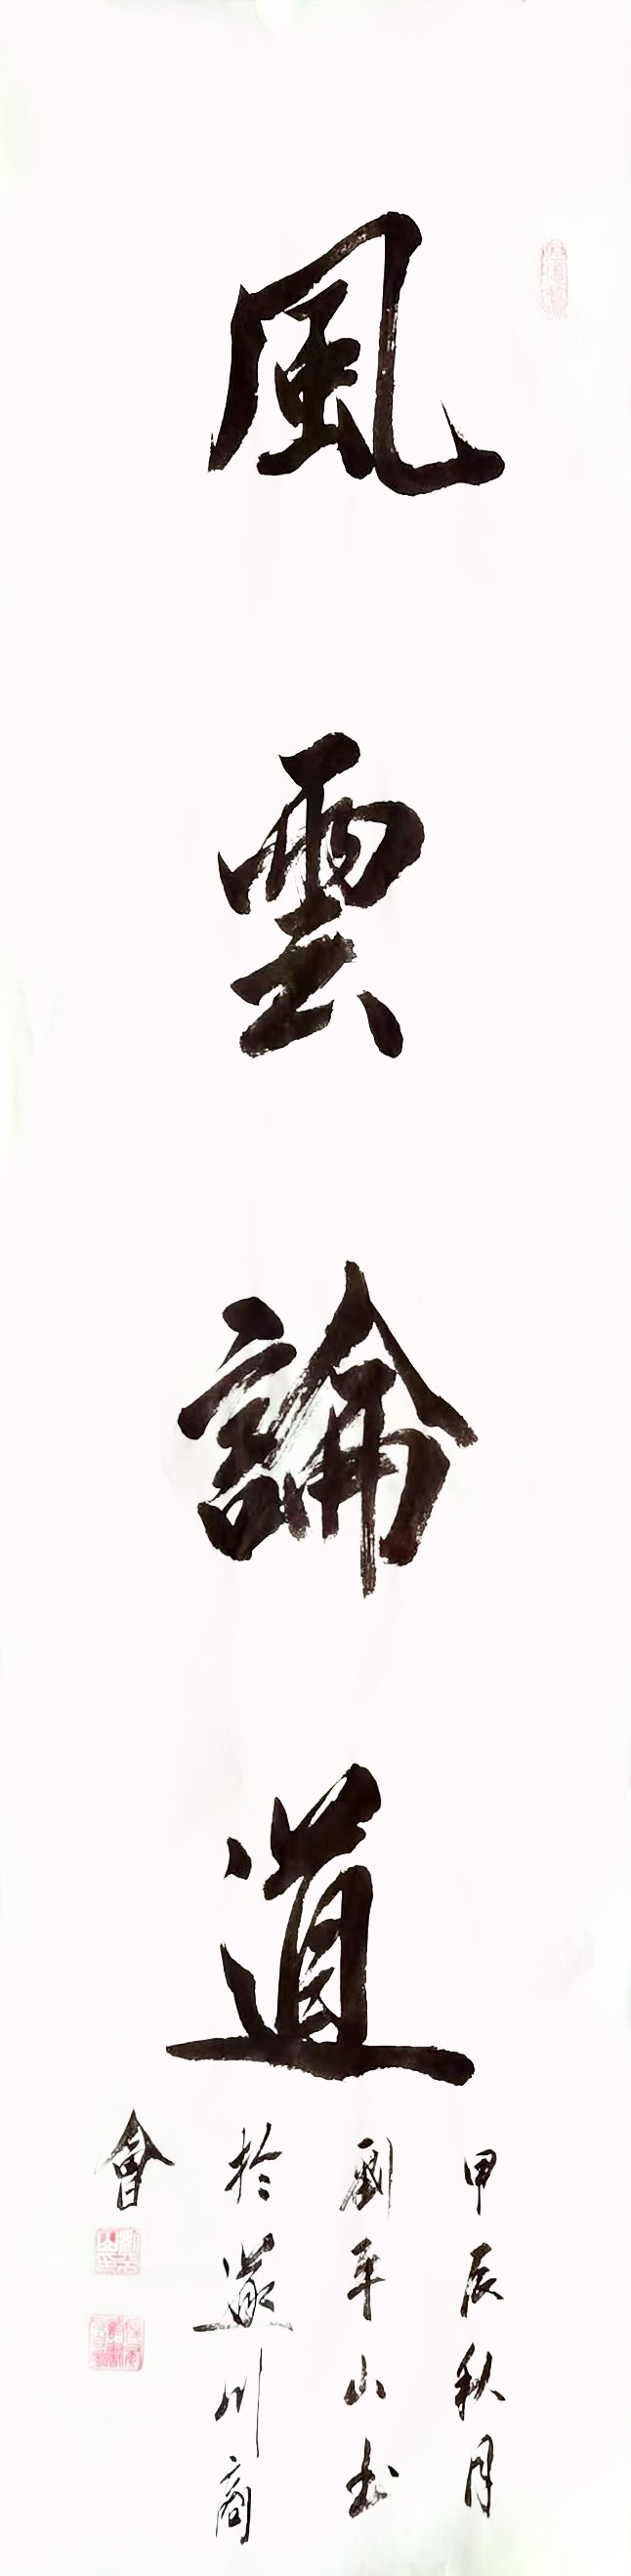 風雲論道
甲辰秋月
劉平山書
於遂川商
會